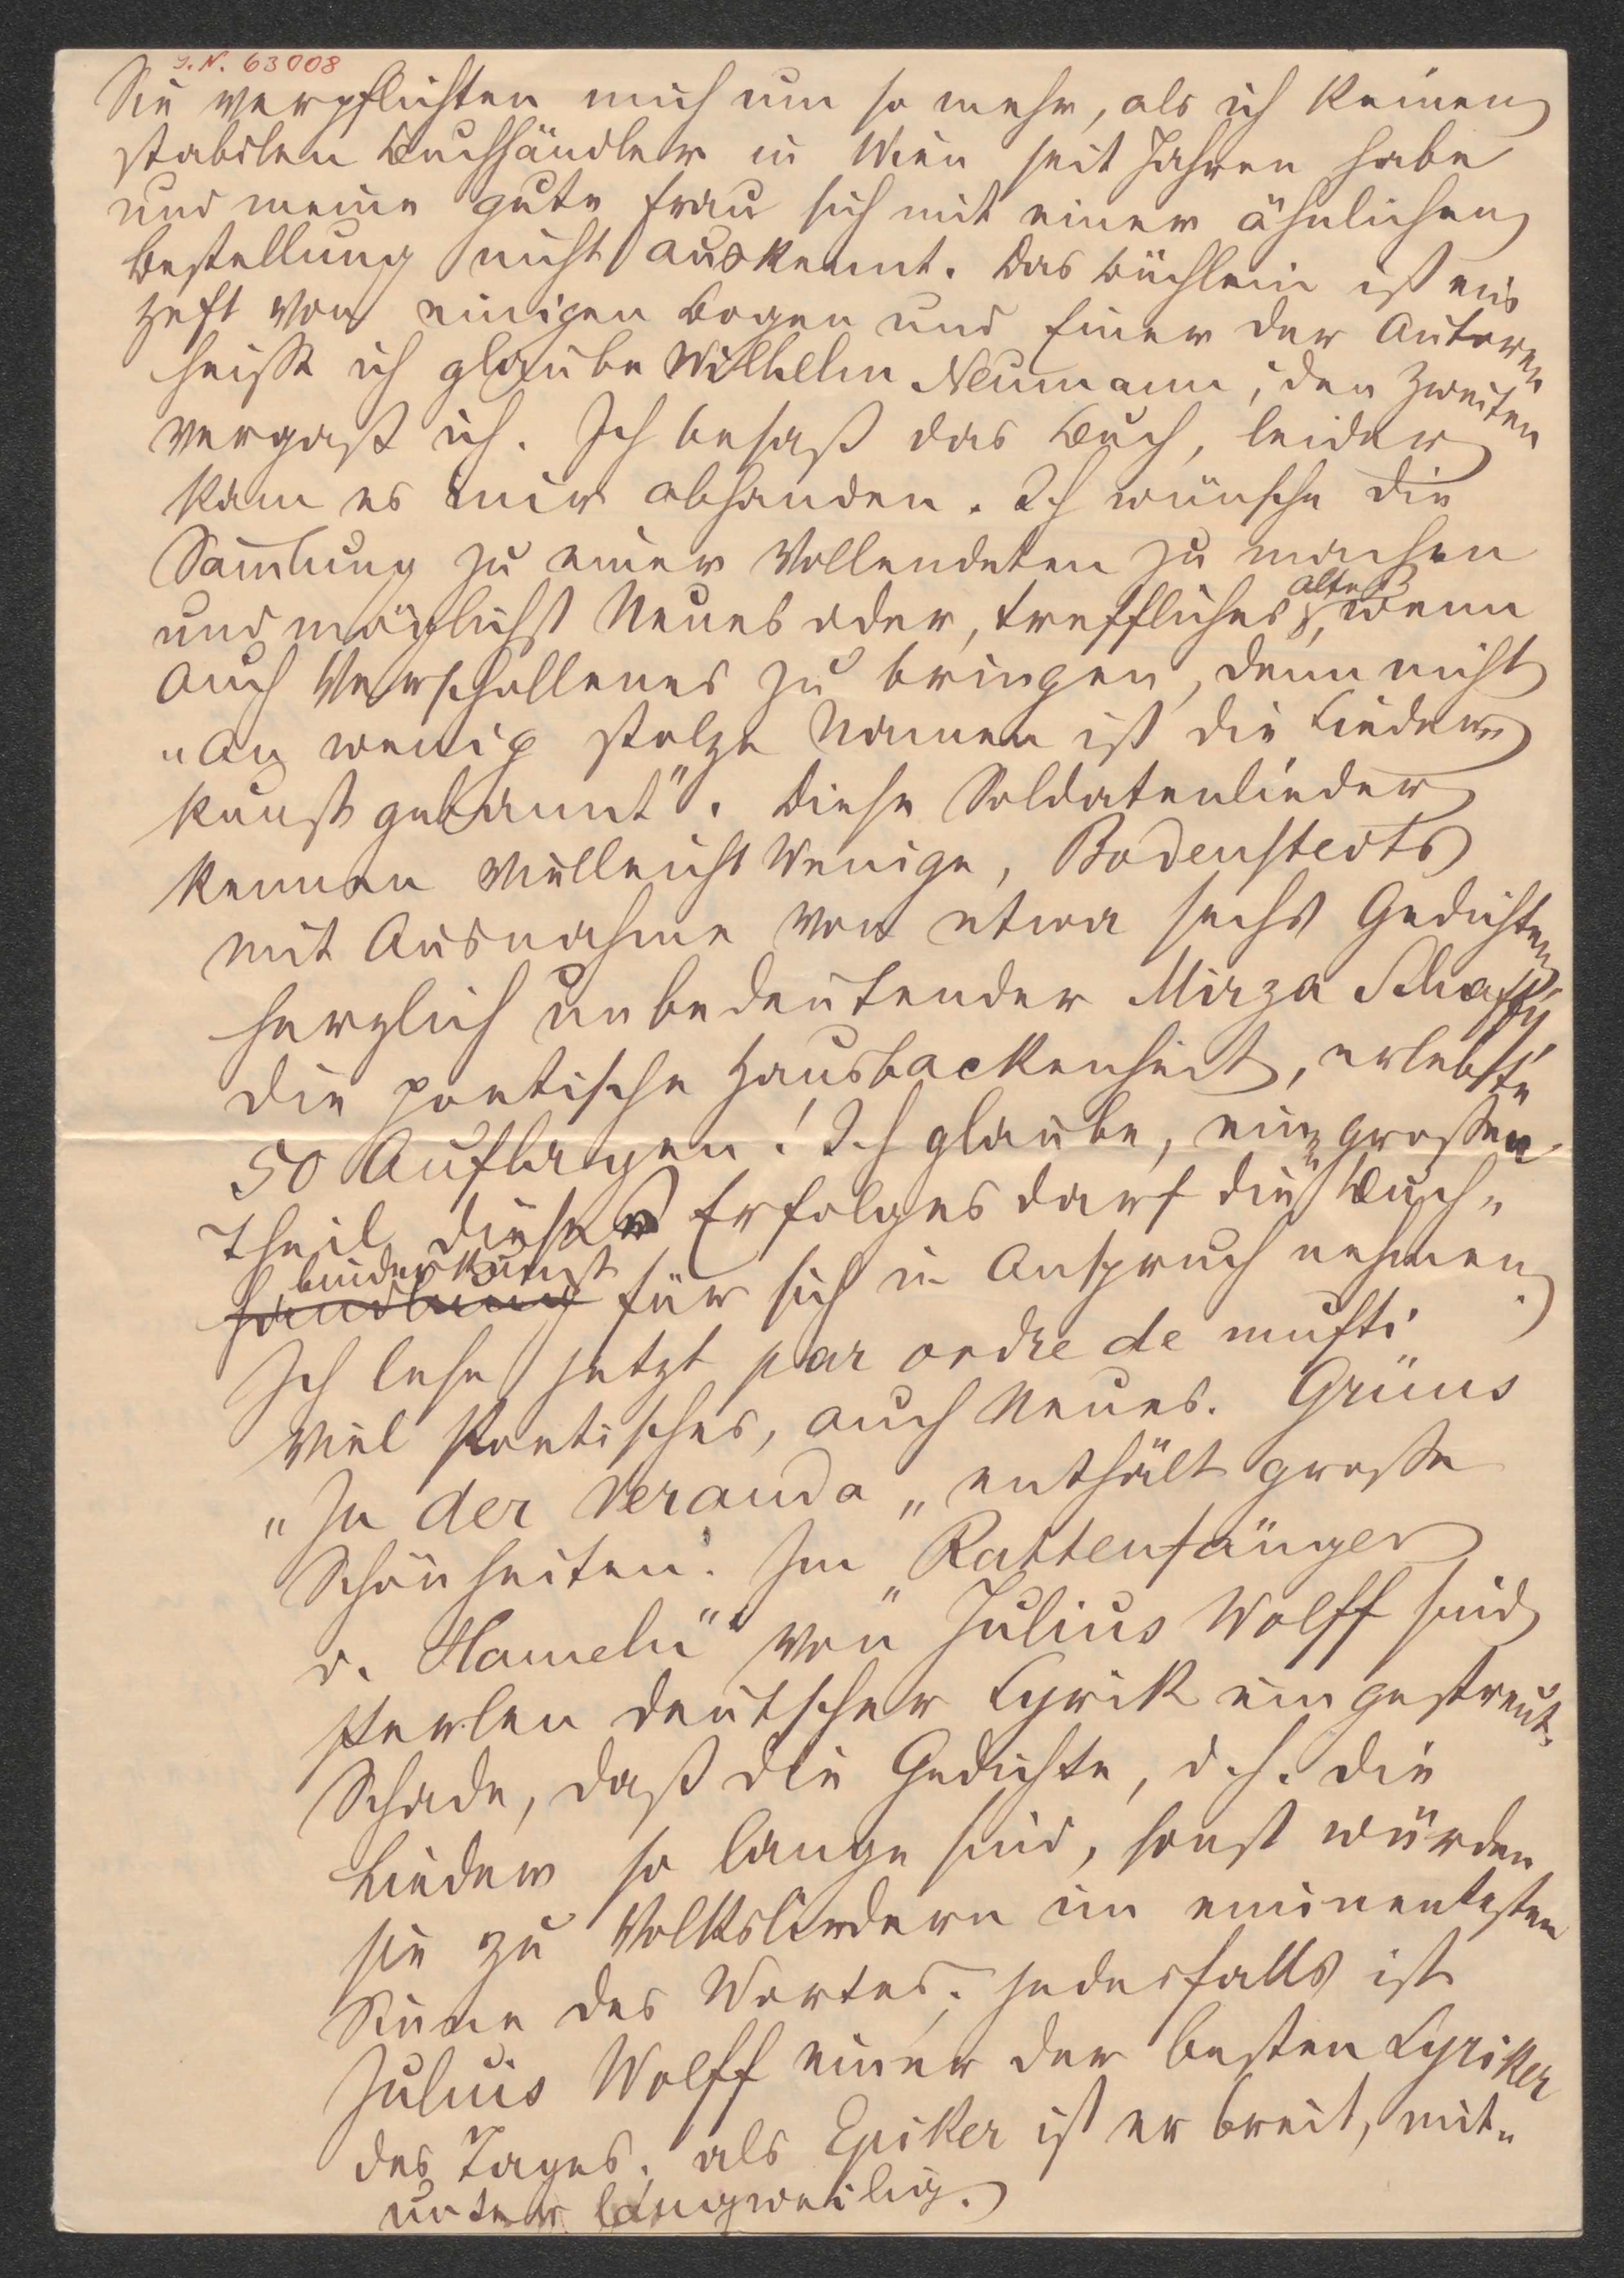 I. N. 63008
Sie verpflichten mich um so mehr, als ich keinen
stabilen Buchhändler in Wien seit Jahren habe
und meine gute Frau sich mit einer ähnlichen
Bestellung nicht auskennt. Das Büchlein ist ein
Heft von einigen Bogen und Einer der Autoren
heisst ich glaube Wilhelm Neumann, den Zweiten
vergaß ich. Ich besaß das Buch, leider
kam es mir abhanden. Ich wünsche die
Sam̄lung zu einer Vollendeten zu machen
und möglichst Neues oder, treffliches altes, wenn
auch Verschollenes zu bringen, denn nicht
"An wenig stolze Namen ist die Lieder-
kunst gebannt". Diese Soldatenlieder
kennen vielleicht Wenige, Bodenstedts
mit Ausnahme von etwa sechs Gedichten
herzlich unbedeutender Mirza Schaffy,
die poetische Hausbackenheit, erlebte
50 Auflagen! Ich glaube, einen grossen
Theil dieses Erfolges darf die Buch-
handlung binderkunst für sich in Anspruch nehmen.
Ich lese jetzt par ordre de mufti
viel Poetisches, auch Neues. Grüns
"In der Veranda" enthält grosse
Schönheiten. Im "Rattenfänger
v. Hameln" von Julius Wolff sind
Perlen deutscher Lyrik eingestreut.
Schade, daß die Gedichte, d. h. die
Lieder so lange sind, sonst würden
sie zu Volksliedern im eminentesten
Sinne des Wortes. Jedesfalls ist
Julius Wolff einer der besten Lyriker
des Tages; als Epiker ist er breit, mit-
unter langweilig.